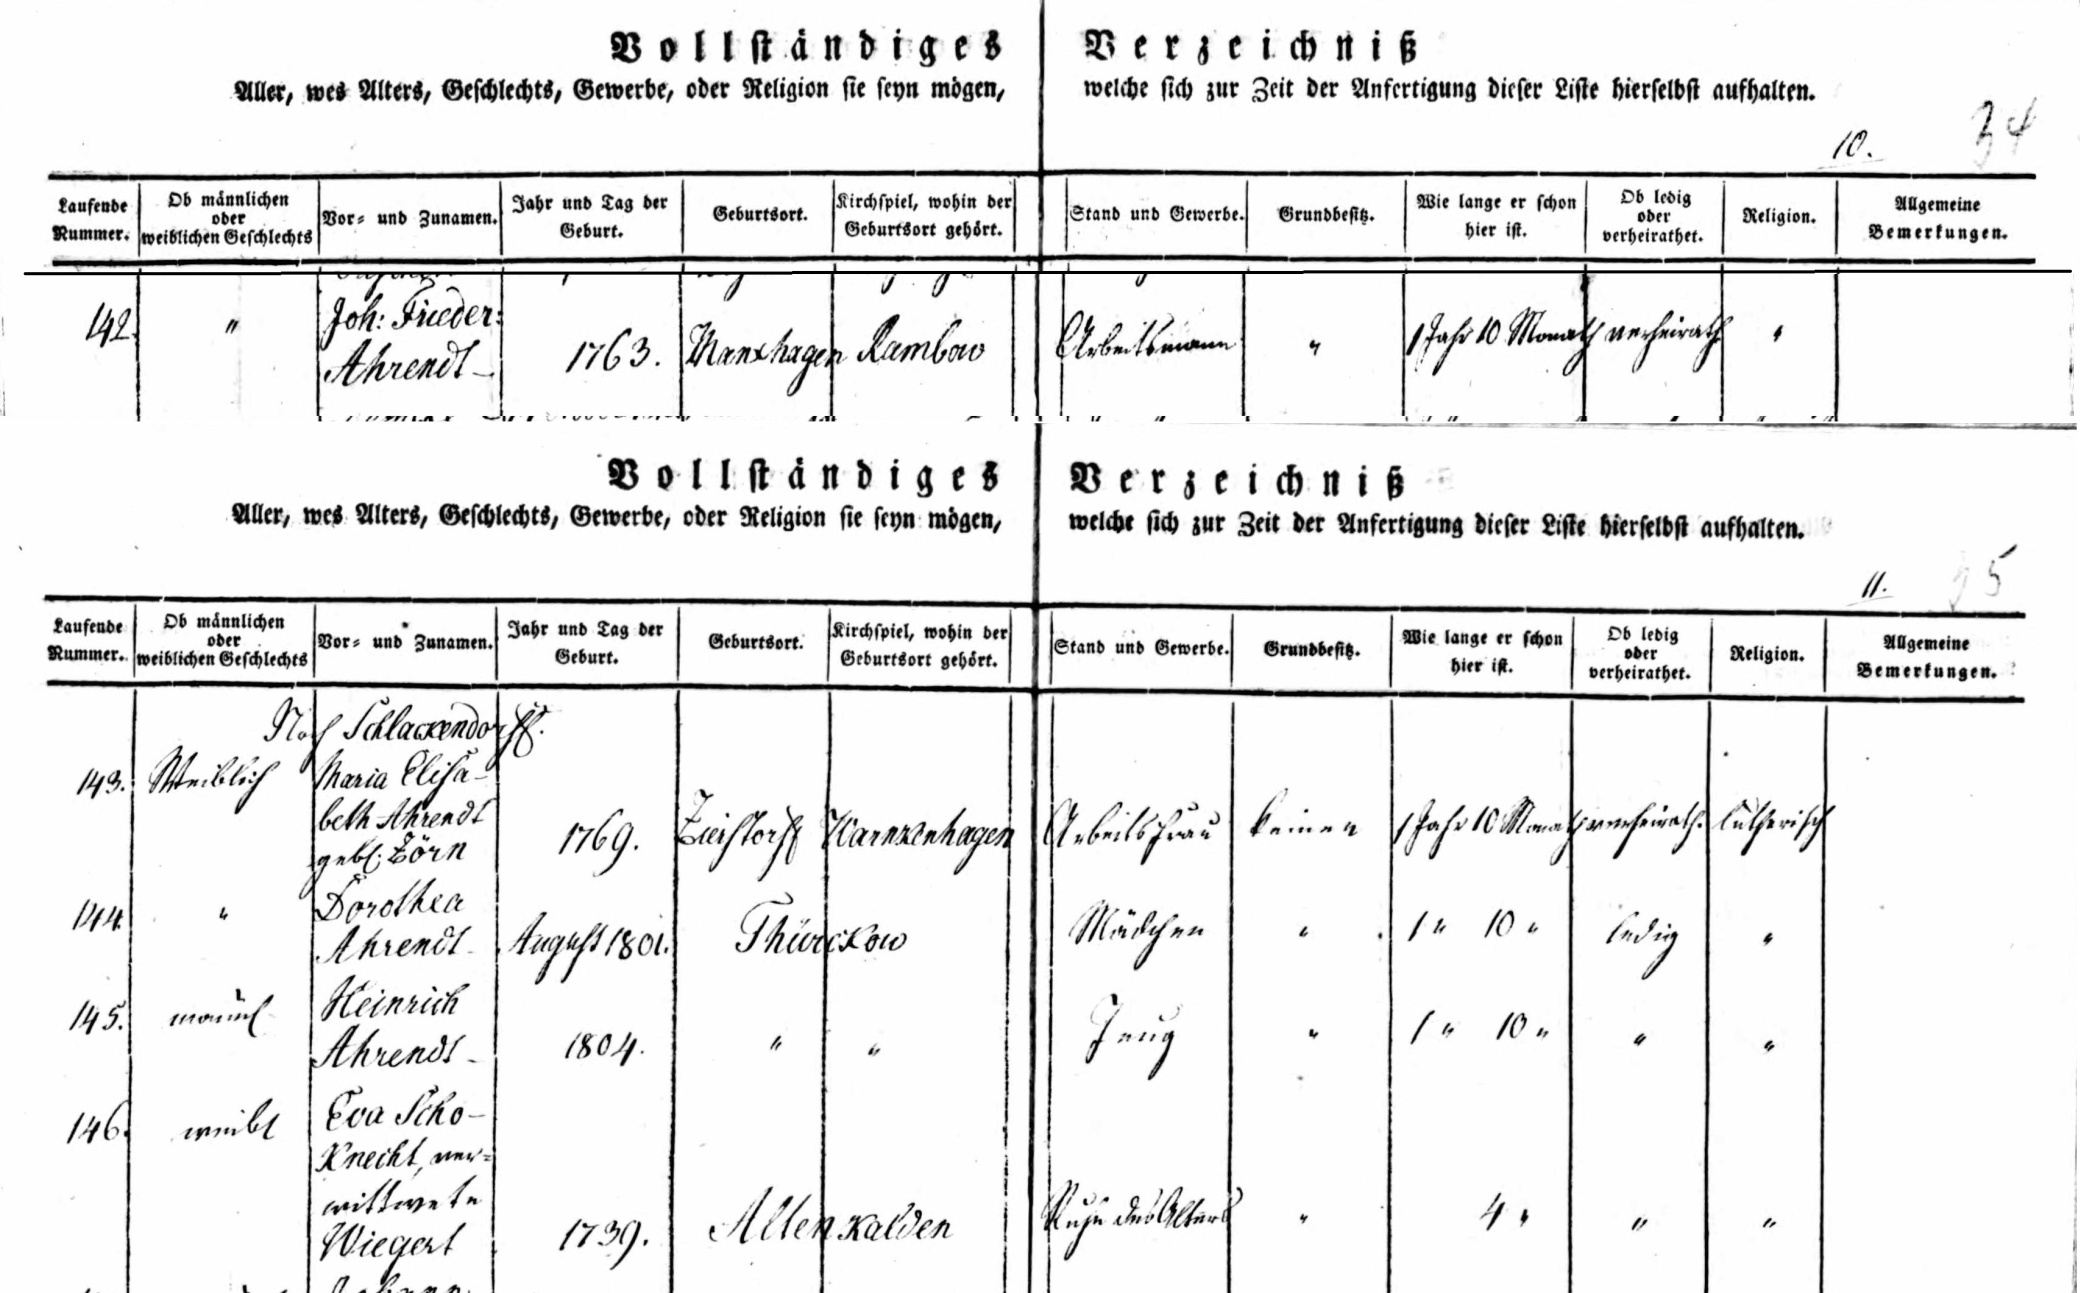 Vollständiges Verzeichniß
Aller, wes Alters, Geschlechts, Gewerbe, oder Religion sie seyn mögen, welche sich zur Zeit der Anfertigung dieser Liste hierselbst aufhalten.
34
10.
Laufende Nummer. Ob männlichen oder weiblichen Geschlechts Vor- und Zunamen. Jahr und Tag der Geburt. Geburtsort. Kirchspiel, wohin der Geburtsort gehört. Stand und Gewerbe. Grundbesitz. Wie lange er schon hier ist. Ob ledig oder verheirathet. Religion. Allgemeine Bemerkungen.
142. " Joh: Frieder:
Ahrendt 1763. Manxhagen Rambow Arbeitsmann " 1 Jahr 10 Monath verheirath "
Vollständiges Verzeichniß
Aller, wes Alters, Geschlechts, Gewerbe, oder Religion sie seyn mögen, welche sich zur Zeit der Anfertigung dieser Liste hierselbst aufhalten.
35
11.
Laufende Nummer. Ob männlichen oder weiblichen Geschlechts Vor- und Zunamen. Jahr und Tag der Geburt. Geburtsort. Kirchspiel, wohin der Geburtsort gehört. Stand und Gewerbe. Grundbesitz. Wie lange er schon hier ist. Ob ledig oder verheirathet. Religion. Allgemeine Bemerkungen.
Noch Schlackendorff.
143. Weiblich Maria Elisa-
beth Ahrendt
gebl: Zörn 1769. Zierstorff Wannkenhagen Arbeitsfrau keinen 1 Jahr 10 Monath verheirath. lutherisch
144. " Dorothea
Ahrendt August 1801. Thürckow Mädchen " 1 " 10 " ledig "
145. männl Heinrich
Ahrendt 1804. " " Jung " 1 " 10 " " "
146. weibl Eva Scho-
Knecht, ver-
wittwete
Wiegert 1739. Alten Kalden Ruhe des Alters " 4 " " "
Johann